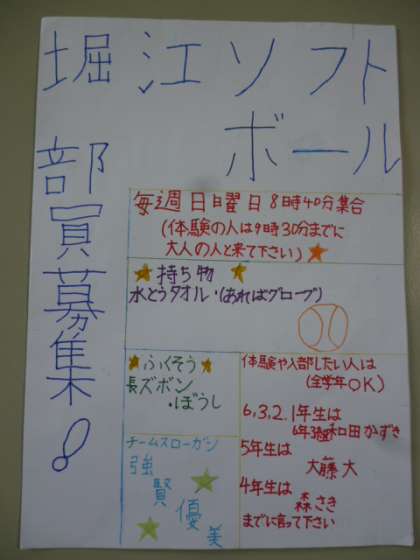 堀江ソフト
ボール
部員募集!
毎週日曜日8時40分集合
(体験の人は9時30分までに
大人の人と来て下さい)
持ち物
水とうタオル・(あればグローブ)
ふくそう
長ズボン
・ぼうし
チームスローガン
強
賢
優
美
体験や入部したい人は
(全学年OK)
6,3,2,1年生は
和田かずき
5年生は
大藤大
4年生は
森さき
までに言って下さい